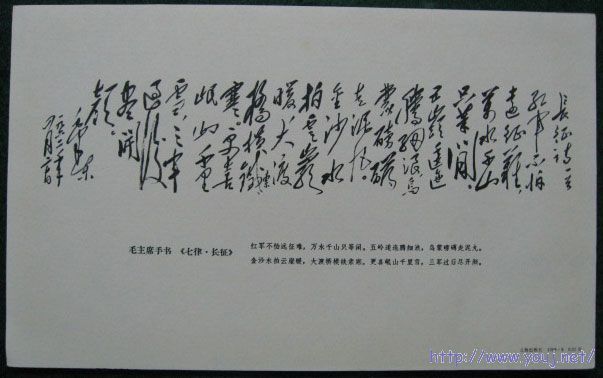 長征詩一首
紅軍不怕
遠征難
萬水千山
只等閒
五嶺逶迤
騰細浪烏
蒙磅礴
走泥丸
金沙水
拍雲巖
暖大渡
橋橫鐵索
寒更喜
岷山千里
雪三軍
過後
盡開
顏
毛澤東
一九六二年
毛主席手书 《七律·长征》
红军不怕远征难,万水千山只等闲。五岭逶迤腾细浪,乌蒙磅礴走泥丸。
金沙水拍云崖暖,大渡桥横铁索寒。更喜岷山千里雪,三军过后尽开颜。
http://www.youj.net/